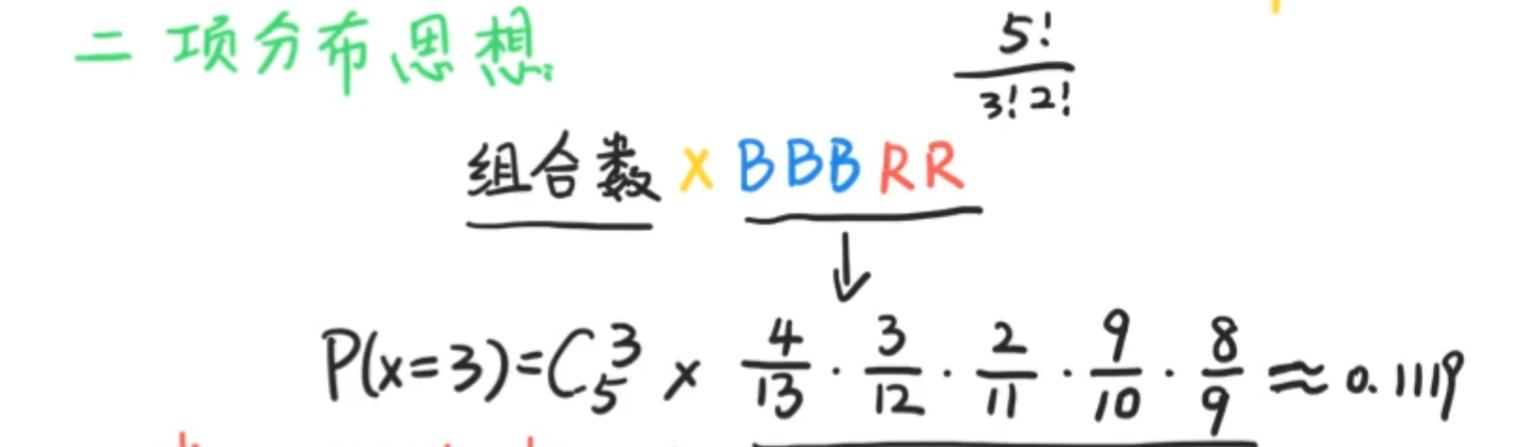 二项分布思想
5!
3!2!
组合数 x BBBRR
P(x=3)=C₅³ × 4/13 · 3/12 · 2/11 · 9/10 · 8/9 ≈ 0.1119